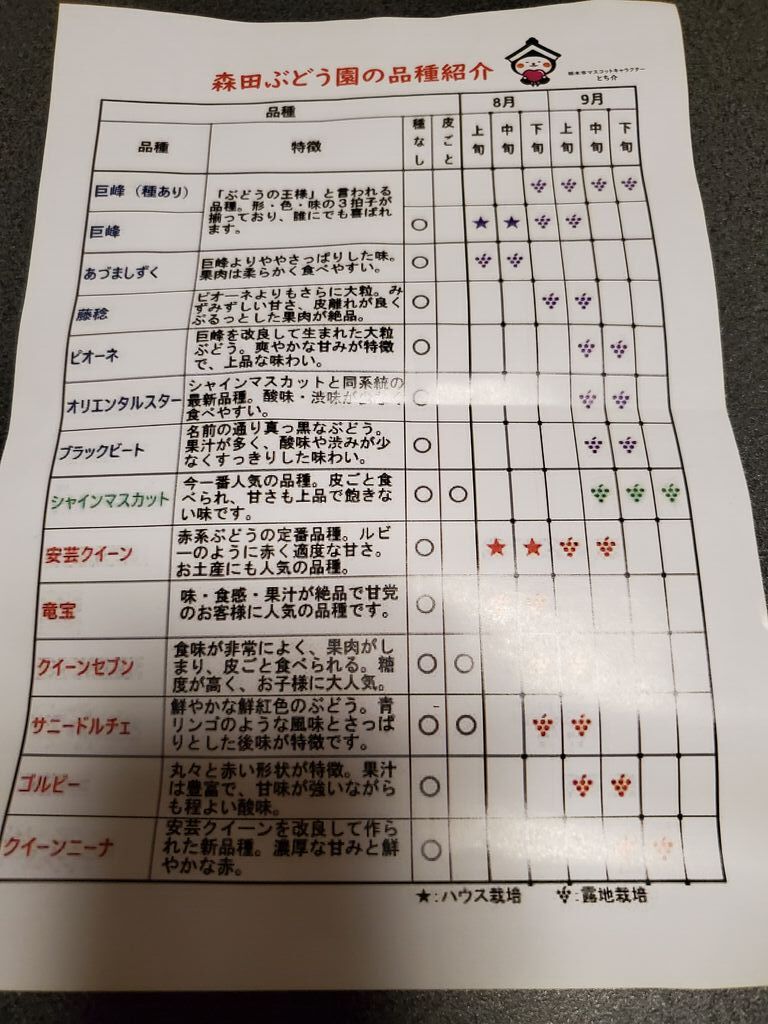 森田ぶどう園の品種紹介
栃木市マスコットキャラクター
とち介
品種
8月 9月
品種 特徴 種なし 皮ごと 上旬 中旬 下旬 上旬 中旬 下旬
巨峰（種あり）
「ぶどうの王様」と言われる
品種。形・色・味の３拍子が
揃っており、誰にでも喜ばれ
ます。
巨峰 ○ ★ ★
あづましずく
巨峰よりややさっぱりした味。
果肉は柔らかく食べやすい。
○
藤稔
ピオーネよりもさらに大粒。み
ずみずしい甘さ、皮離れが良く
ぷるっとした果肉が絶品。
○
ピオーネ
巨峰を改良して生まれた大粒
ぶどう。爽やかな甘みが特徴
で、上品な味わい。
○
オリエンタルスター
シャインマスカットと同系統の
最新品種。酸味・渋味が
食べやすい。
○
ブラックビート
名前の通り真っ黒なぶどう。
果汁が多く、酸味や渋みが少
なくすっきりした味わい。
○
シャインマスカット
今一番人気の品種。皮ごと食
べられ、甘さも上品で飽きな
い味です。
○ ○
安芸クイーン
赤系ぶどうの定番品種。ルビ
ーのように赤く適度な甘さ。
お土産にも人気の品種。
○ ★ ★
竜宝
味・食感・果汁が絶品で甘党
のお客様に人気の品種です。
○
クイーンセブン
食味が非常によく、果肉がし
まり、皮ごと食べられる。糖
度が高く、お子様に大人気。
○ ○
サニードルチェ
鮮やかな鮮紅色のぶどう。青
リンゴのような風味とさっぱ
りとした後味が特徴です。
○ ○
ゴルビー
丸々と赤い形状が特徴。果汁
は豊富で、甘味が強いながら
も程よい酸味。
○
クイーンニーナ
安芸クイーンを改良して作ら
れた新品種。濃厚な甘みと鮮
やかな赤。
○
★:ハウス栽培 :露地栽培